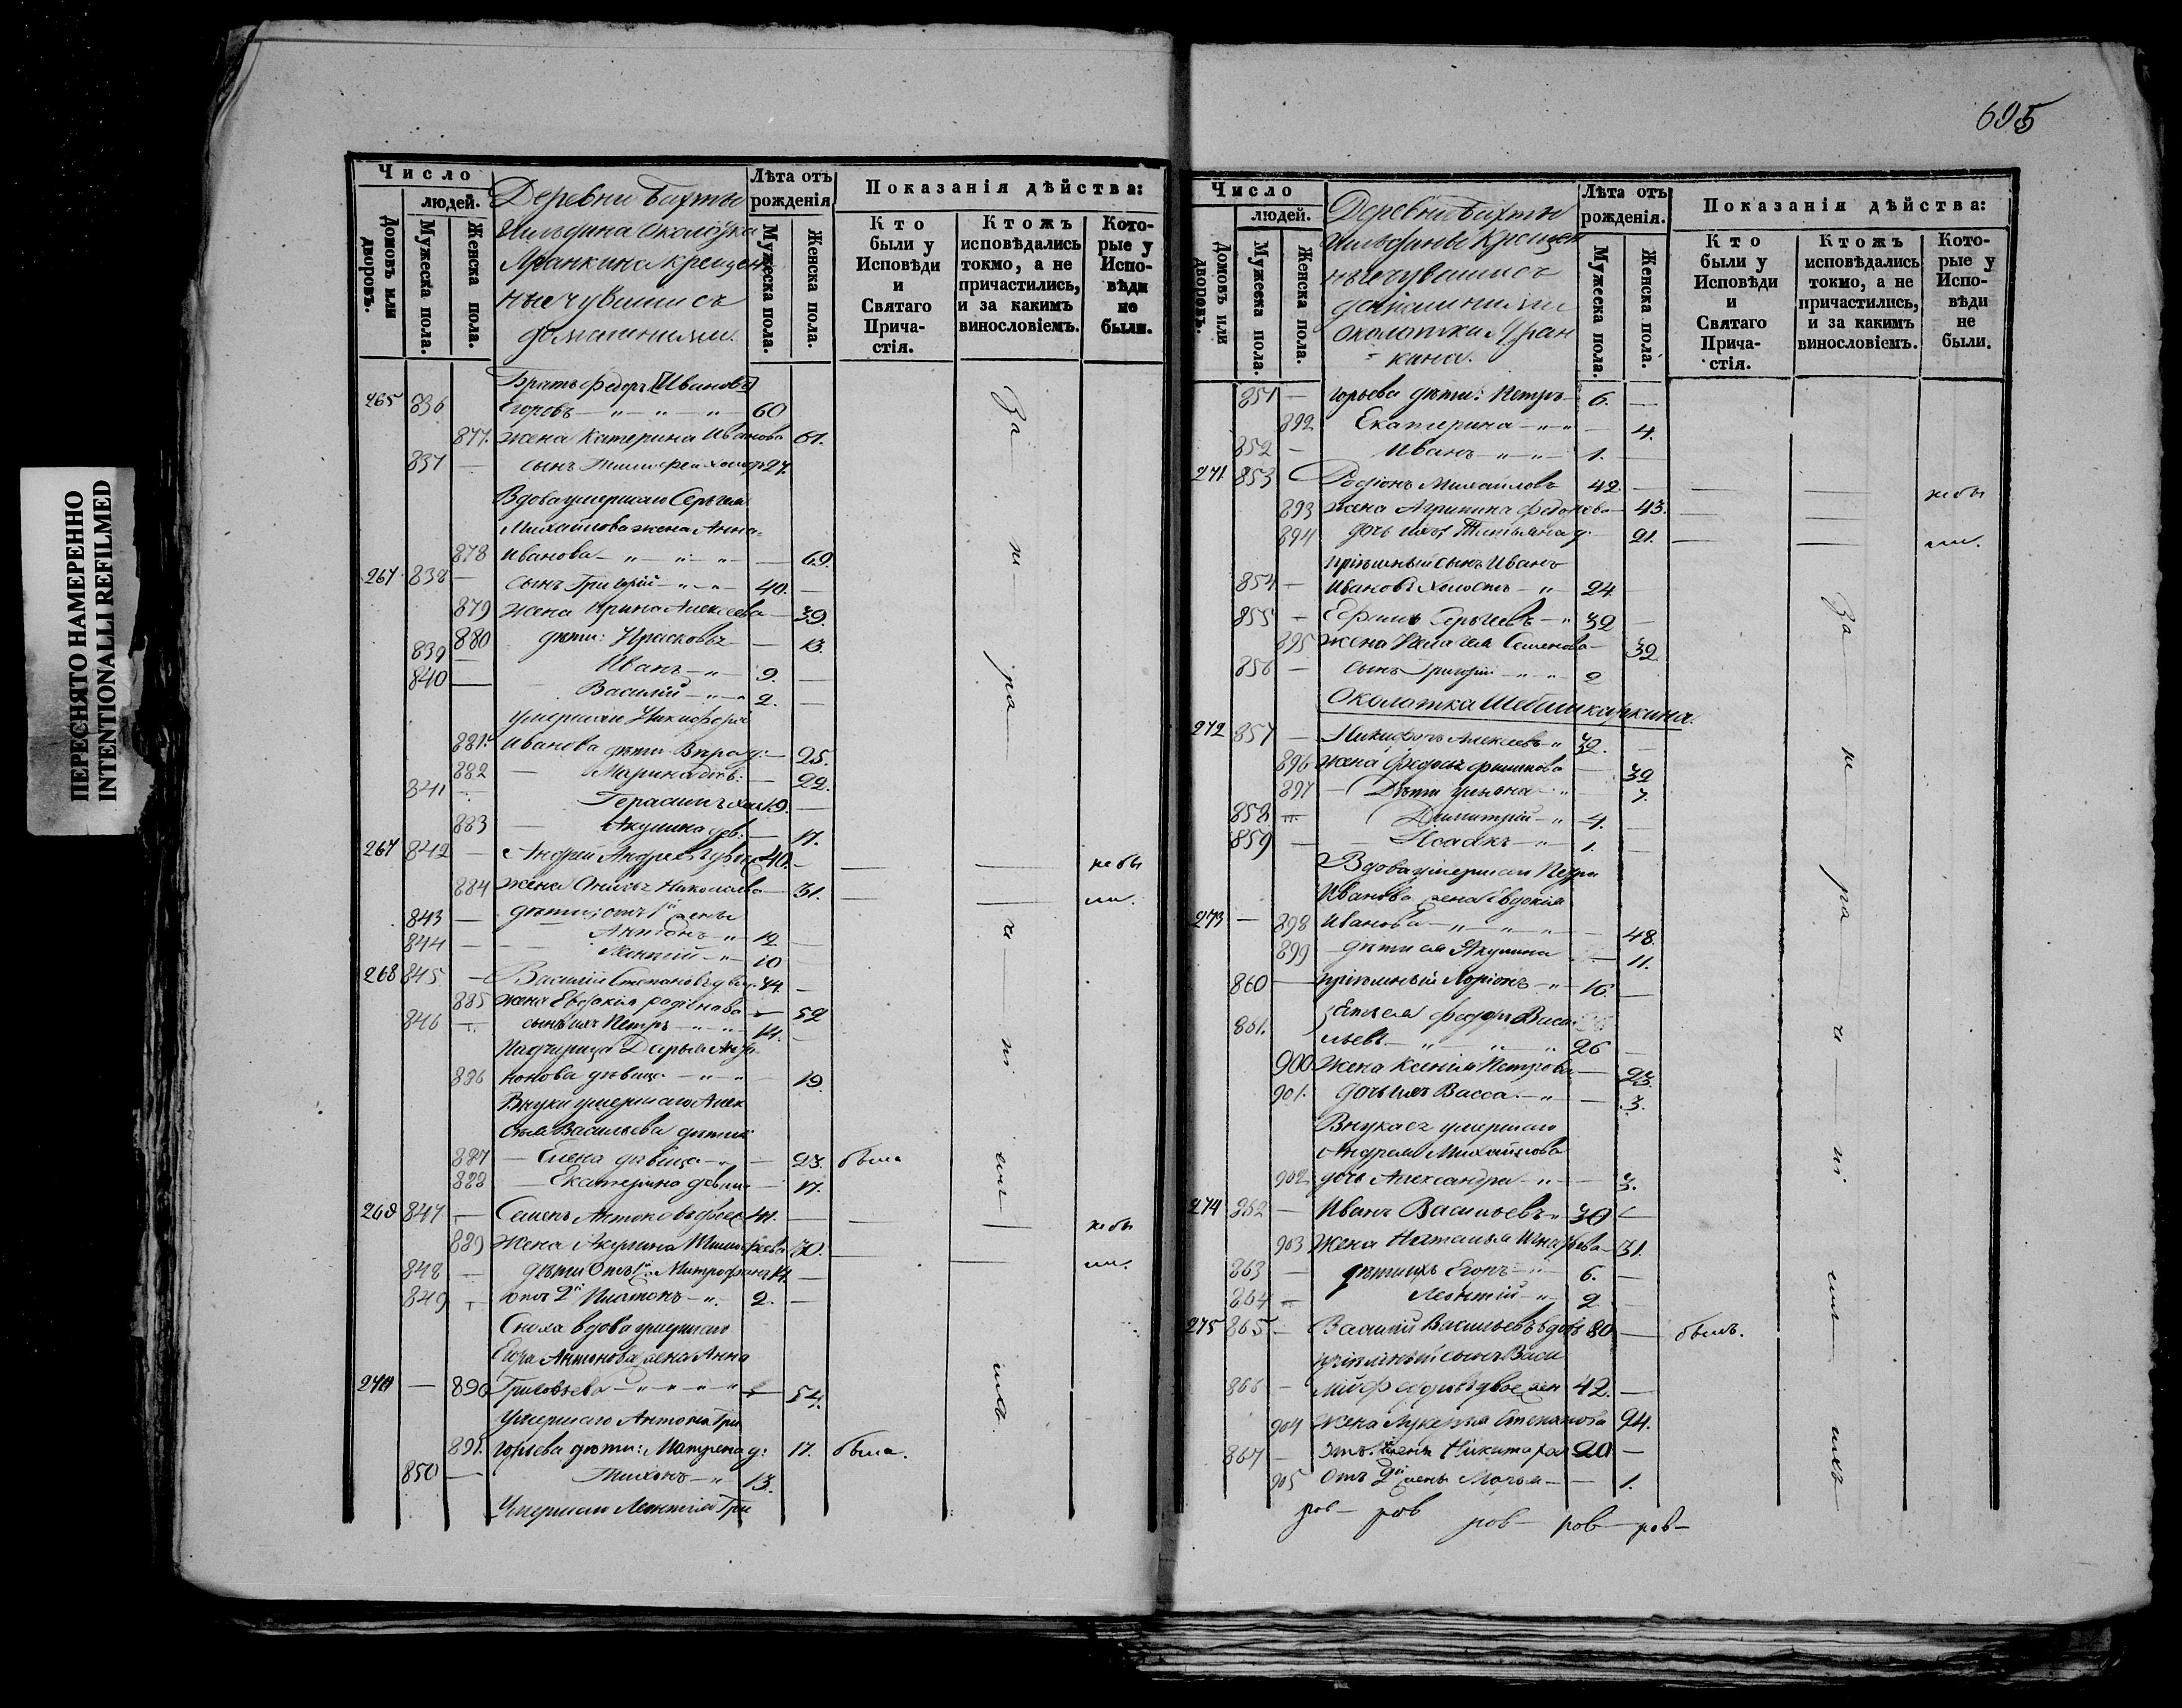 695
ПЕРЕСНЯТО НАМЕРЕННО
INTENTIONALLI REFILMED
Число
людей.
Домовъ или дворовъ.
Мужеска пола.
Женска пола.
Деревни Бахты
Околодка
крещен
ные чуваши съ
домашними.
Лѣта отъ рожденія
Мужеска пола.
Женска пола.
Показанія дѣйства:
Кто были у Исповѣди и Святаго Причастія.
Ктожъ исповѣдались токмо, а не причастились, и за какимъ винословіемъ.
Которые у Исповѣди не были.
265 836 Братъ Федоръ [Ивановъ]
Егоровъ — " — " — " — 60
877. жена Катерина Иванова 61.
837 — сынъ Тимофей холос 27.
Вдова умершаго Сергея
Михайлова жена Анна
878 Иванова — " — " — " — 69.
267 838 — сынъ Григорій — " — " 40. —
879 жена Ирина Алексеева — 39.
880 дѣти: Прасковья — 13.
839 — Иванъ — " — 9. —
840 — Василій — " — " 2. —
умершаго Никифора
881. Иванова дѣти Вѣра д: — 25.
882 — Марина дѣв: — 22.
841 — Герасимъ хол 19. —
883 — Акулина дѣв: — 17.
267 842 — Андрей Андреевъ двоеж 40. — не бы
884 жена Николаева — 31. — ли.
843 — дѣти: отъ 1й жены
Антонъ — " 12 —
844 — — " — 10 —
268 845 — Василій Степановъ двоеж. 44. —
885 жена Евдокія Родіонова — 52
846 — сынъ ихъ Петръ — " — " 14. —
Падчерица Дарья
886 нонова дѣвица — " — " — 19.
Внуки умершаго Алек
сѣя Васильева дѣти
887 — Елена дѣвица — " — 23. была
888 — Екатерина дѣвица — 17.
269 847 — Семенъ Антоновъ двоеж 41. — не бы
889 Жена Акулина Тимофеева 30. — ли.
848 — дѣти Отъ 1й Митрофанъ 14. —
849 — отъ 2й Платонъ — ". 2. —
Сноха вдова умершаго
Егора Антонова жена Анна
270 — 890 Григорьева — " " " " — 54.
Умершаго Антона Гри
891. горьева дѣти: Матрена д: 17. была.
850 — Тихонъ — " — 13.
Умершаго Леонтія Гри
За — ни — ра — чі — ні — ем — ихъ.
Число
людей.
Домовъ или дворовъ.
Мужеска пола.
Женска пола.
Деревни Бахты
крещен
ные чуваши съ
домашними
околотка
кина.
Лѣта отъ рожденія.
Мужеска пола.
Женска пола.
Показанія дѣйства:
Кто были у Исповѣди и Святаго Причастія.
Ктожъ исповѣдались токмо, а не причастились, и за какимъ винословіемъ.
Которые у Исповѣди не были.
851 — горьева дѣти: Петръ — 6. —
892 Екатерина — " — " — 4.
852 — Иванъ — " — " — 1. —
271 853 Родіонъ Михайловъ 42. — не бы
893 жена Агрипина Федорова — 43. —
894 дочь ихъ Татьяна д. 21. — ли.
пріемный сынъ Иванъ
854 — Ивановъ холостъ — " — 24
855 — Ефимъ Сергеевъ — " 32 —
895 жена Пелагея Семенова — 32
856 — сынъ Григорій — " — " 2
Околотка
272 857 — Никифоръ Алексеевъ — " 32. —
896 жена 32
897 — Дѣти Ульяна — " 7.
858 Димитрій — " 4. —
859 — Исаакъ — " — 1. —
Вдова умершаго Петра
Иванова жена Евдокія
273 — 898 Иванова — " — " — " — 48.
899 дѣти ея Акулина — 11.
860 — пріемный Ларіонъ — " 16. —
861. Зять ея Федоръ Васи
льевъ — " — " — " 26 —
900 жена Ксенія Петрова — 23.
901. дочь ихъ Васса — " — 3.
Внука ея умершаго
Андрея Михайлова
902 дочь Александра — " — 3.
274 862 — Иванъ Васильевъ " 30 —
903 жена Наталья — 31.
863 — дѣти ихъ Егоръ — " — 6. —
864 — Леонтій — " 2 —
275 865 — Василій Васильевъ вдов 80 — былъ.
пріемный сынъ Васи
866 — лій Федоровъ двоежен 42. —
904 жена Лукерья Степанова 24.
867 — Отъ 1й жены Никита хол 20 —
905 отъ 2й жены Марья — — 1.
За — ни — ра — чі — ні — ем — ихъ
ров — ров ров — ров — ров —